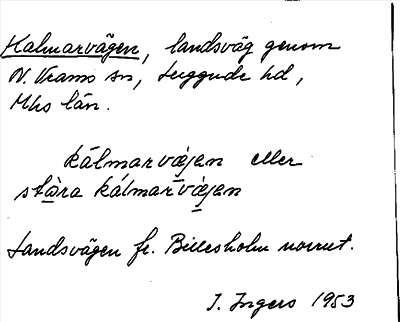 Kalmarvägen, landsväg genom
N. Vrams sn, Luggude hd,
Mhs län.
kálmarvæ̀jen eller
stàra kálmarvæ̀jen
Landsvägen fr. Billesholm norrut.
I. Ingers 1953